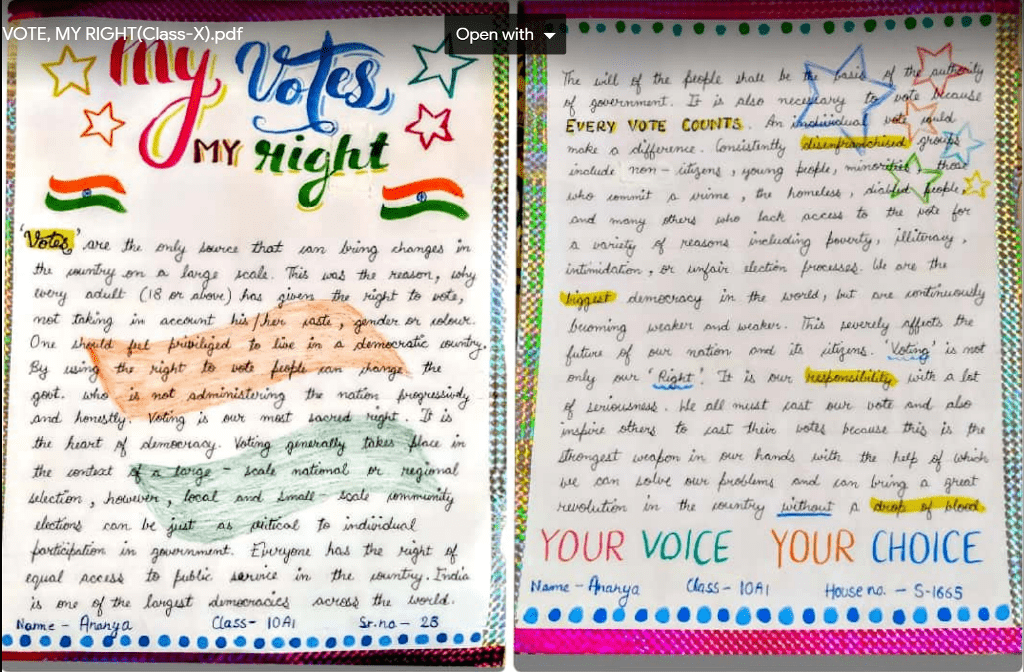 VOTE, MY RIGHT(Class-X).pdf
Open with
My Votes,
MY right
'Votes,' are the only source that can bring changes in
the country on a large scale. This was the reason, why
every adult (18 or above) has given the right to vote,
not taking in account his/her caste, gender or colour.
One should feel priviliged to live in a democratic country.
By using the right to vote people can change the
govt. who is not administering the nation progressively
and honestly. Voting is our most sacred right. It is
the heart of democracy. Voting generally takes place in
the context of a large-scale national or regional
selection, however, local and small-scale community
elections can be just as critical to individual
participation in government. Everyone has the right of
equal access to public service in the country. India
is one of the largest democracies across the world.
Name - Ananya Class- 10A1 Sr.no- 28
The will of the people shall be the basis of the authority
of government. It is also necessary to vote because
EVERY VOTE COUNTS. An individual vote could
make a difference. Consistently disenfranchised groups
include non-citizens, young people, minorities, those
who commit a crime, the homeless, disabled people,
and many others who lack access to the vote for
a variety of reasons including poverty, illiteracy,
intimidation, or unfair election processes. We are the
biggest democracy in the world, but are continuously
becoming weaker and weaker. This severely affects the
future of our nation and its citizens. 'Voting' is not
only our 'Right'. It is our responsibility with a lot
of seriousness. We all must cast our vote and also
inspire others to cast their votes because this is the
strongest weapon in our hands with the help of which
we can solve our problems and can bring a great
revolution in the country without a drop of blood.
YOUR VOICE YOUR CHOICE
Name - Ananya Class- 10A1 House no. - S-1665